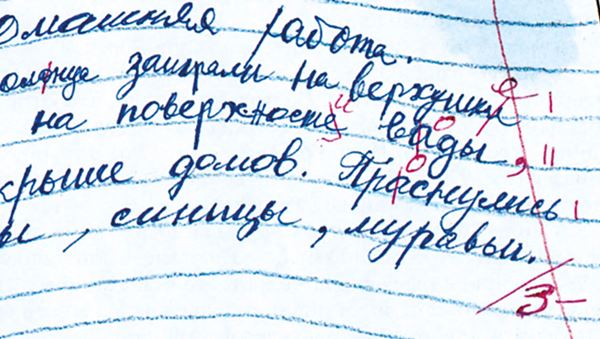 омашняя работа.
олнце заиграли на верхушке
на поверхносте вады,
крыше домов. Праснулись
ы, синицы, муравьи.
3-